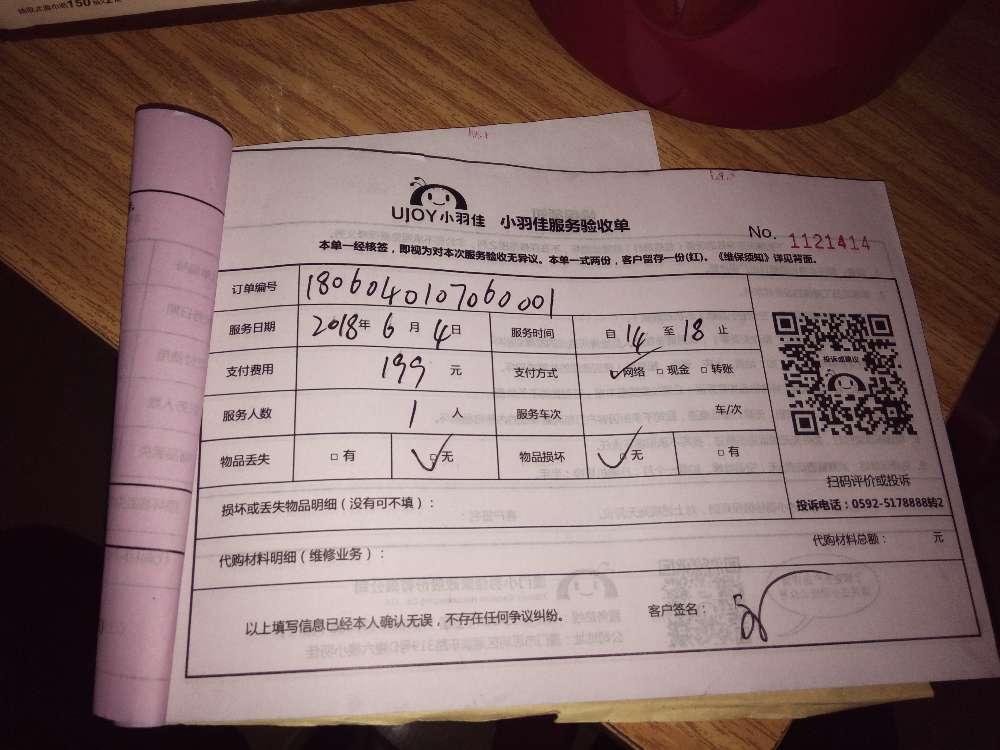 UJOY小羽佳 小羽佳服务验收单
No. 1121414
本单一经核签，即视为对本次服务验收无异议。本单一式两份，客户留存一份(红)。《维保须知》详见背面。
订单编号 1806040107060001
服务日期 2018年 6月 4日 服务时间 自 14 至 18 止
支付费用 199 元 支付方式 ☑网络 □现金 □转账
服务人数 1 人 服务车次 车/次
物品丢失 □有 ☑无 物品损坏 ☑无 □有
投诉或建议
扫码评价或投诉
投诉电话：0592-5178888转2
损坏或丢失物品明细（没有可不填）：
代购材料明细（维修业务）： 代购材料总额： 元
以上填写信息已经本人确认无误，不存在任何争议纠纷。 客户签名：